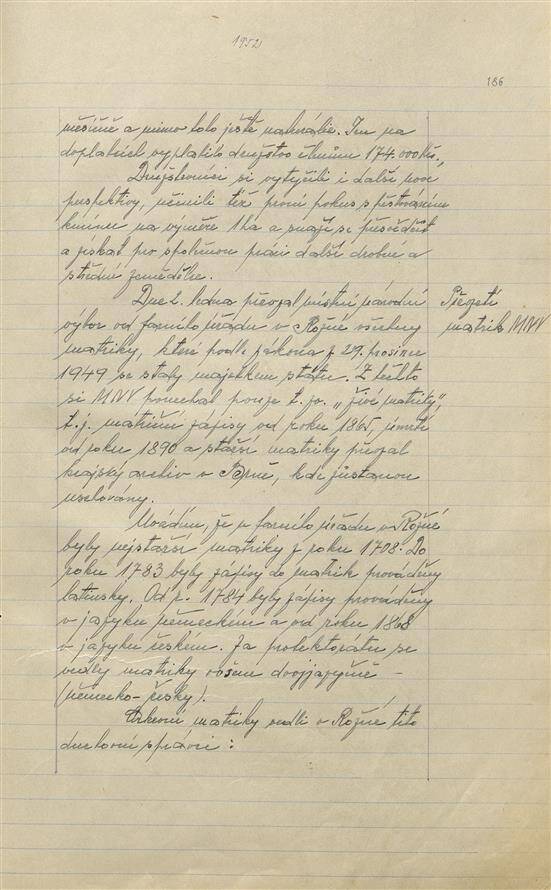 1952
186
měsíčně a mimo toho ještě naturálie. Jen na
doplatcích vyplatilo družstvo členům 174.000 Kčs.,
Družstevníci si vytýčili i další nové
perspektivy, učinili též první pokus s pěstováním
kmínu na výměře 1 ha a snaží se přesvědčit
a získat pro společnou práci další drobné a
střední zemědělce.
Dne 2. ledna převzal místní národní
Převzetí
výbor od farního úřadu v Rožné všechny
matrik MNV
matriky, které podle zákona z 29. prosince
1949 se staly majetkem státu. Z těchto
si MNV ponechal pouze t. zv. „živé matriky",
t. j. matriční zápisy od roku 1865, úmrtí
od roku 1890 a starší matriky převzal
krajský archiv v Brně, kde zůstanou
uschovány.
Uvádím, že u farního úřadu v Rožné
byly nejstarší matriky z roku 1708. Do
roku 1783 byly zápisy do matrik prováděny
latinsky. Od r. 1784 byly zápisy prováděny
v jazyku německém a od roku 1868
v jazyku českém. Za protektorátu se
vedly matriky ovšem dvojjazyčně -
(německo - česky).
Církevní matriky vedli v Rožné tito
duchovní správci :